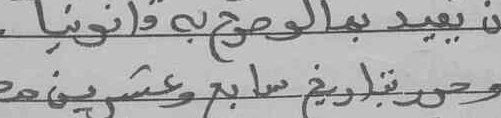 ن يفيد بما لو صرح به قانونيا
وحرر بتاريخ سابع وعشرين